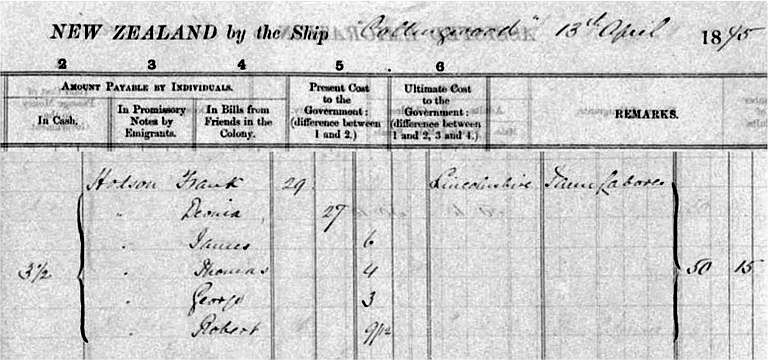 NEW ZEALAND by the Ship "Collingwood" 13th April 1875
2 3 4 5 6
AMOUNT PAYABLE BY INDIVIDUALS.
In Cash.
In Promissory
Notes by
Emigrants.
In Bills from
Friends in the
Colony.
Present Cost
to the
Government:
(difference between
1 and 2.)
Ultimate Cost
to the
Government:
(difference between
1 and 2, 3 and 4.)
REMARKS.
Hodson Frank 29 Lincolnshire Farm Laborer
" 27
" James 6
3½ " Thomas 4 50 15
" George 3
" Robert 9/12